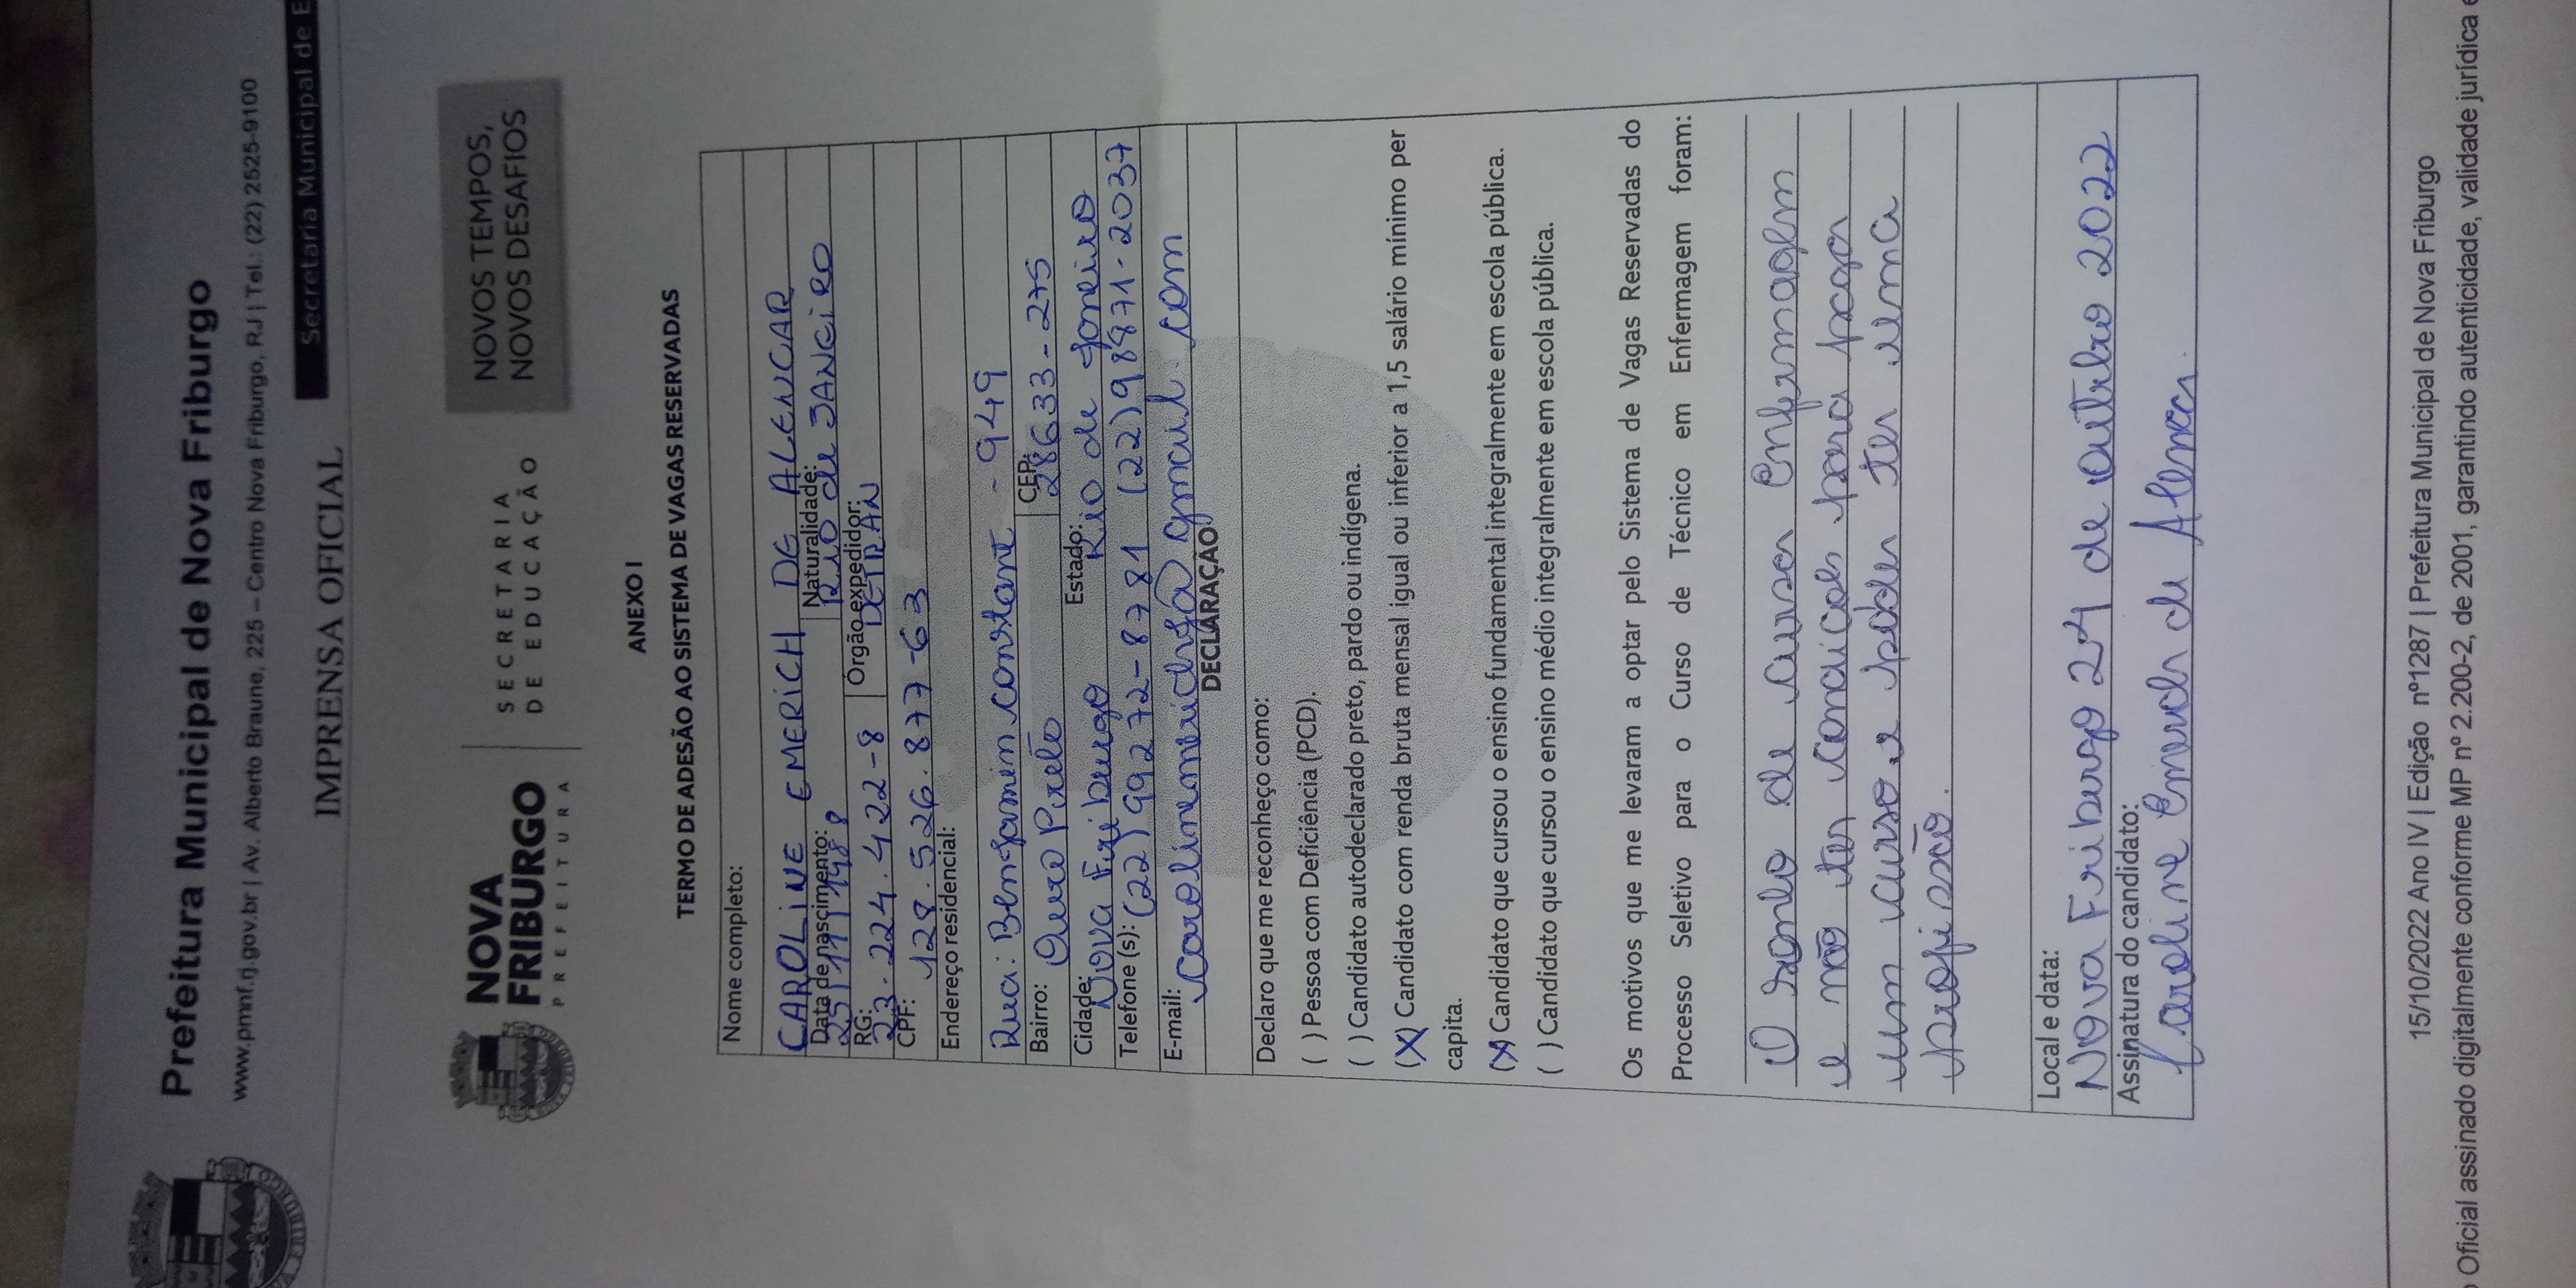 Prefeitura Municipal de Nova Friburgo
www.pmnf.rj.gov.br | Av. Alberto Braune, 225 – Centro Nova Friburgo, RJ | Tel.: (22) 2525-9100
Secretaria Municipal de E
IMPRENSA OFICIAL
NOVA FRIBURGO
PREFEITURA
SECRETARIA
DE EDUCAÇÃO
NOVOS TEMPOS,
NOVOS DESAFIOS
ANEXO I
TERMO DE ADESÃO AO SISTEMA DE VAGAS RESERVADAS
Nome completo:
CAROLINE EMERICH DE ALENCAR
Data de nascimento: 25/11/1988 Naturalidade: RIO de JANEIRO
RG: 23.224.422-8 Órgão expedidor: DETRAN
CPF: 128.526.877-63
Endereço residencial:
Rua: Benjamin constant - 949
Bairro: Ouro Preto CEP: 28633-275
Cidade: Nova Friburgo Estado: Rio de Janeiro
Telefone (s): (22) 99272-8781 (22) 98871-2037
E-mail: @gmail.com
DECLARAÇÃO
Declaro que me reconheço como:
( ) Pessoa com Deficiência (PCD).
( ) Candidato autodeclarado preto, pardo ou indígena.
(X) Candidato com renda bruta mensal igual ou inferior a 1,5 salário mínimo per
capita.
(X) Candidato que cursou o ensino fundamental integralmente em escola pública.
( ) Candidato que cursou o ensino médio integralmente em escola pública.
Os motivos que me levaram a optar pelo Sistema de Vagas Reservadas do
Processo Seletivo para o Curso de Técnico em Enfermagem foram:
O sonho de cursar Enfermagem
e não ter condições para pagar
um curso e poder ter uma
profissão.
Local e data:
Nova Friburgo 24 de outubro 2022
Assinatura do candidato:
Caroline Emerich de Alencar
15/10/2022 Ano IV | Edição nº1287 | Prefeitura Municipal de Nova Friburgo
Oficial assinado digitalmente conforme MP nº 2.200-2, de 2001, garantindo autenticidade, validade jurídica e